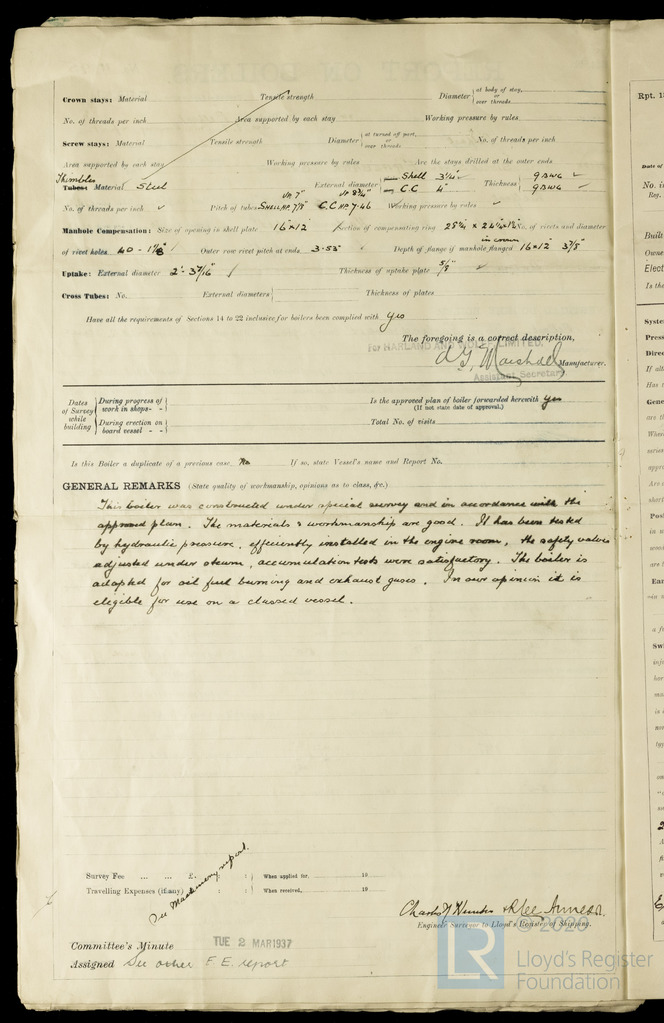 Crown stays: Material Tensile strength Diameter { at body of stay, or over threads
No. of threads per inch Area supported by each stay Working pressure by rules
Screw stays: Material Tensile strength Diameter { at turned off part, or over threads No. of threads per inch
Area supported by each stay Working pressure by rules Are the stays drilled at the outer ends
Thimbles
Tubes: Material Steel External diameter { Shell 3¼" C.C 4" Thickness { 9 BWG ✓ 9 BWG ✓
No. of threads per inch ✓ Pitch of tubes Working pressure by rules ✓
Manhole Compensation: Size of opening in shell plate 16"×12" Section of compensating ring No. of rivets and diameter
of rivet holes 40 - Outer row rivet pitch at ends 3·53" Depth of flange if manhole flanged 16"×12" 3⅛"
Uptake: External diameter Thickness of uptake plate 5/8" ✓
Cross Tubes: No. External diameters { Thickness of plates
Have all the requirements of Sections 14 to 22 inclusive for boilers been complied with yes
The foregoing is a correct description,
For HARLAND AND WOLFF, LIMITED.
A G Marshall Manufacturer.
Assistant Secretary
Dates of Survey while building { During progress of work in shops - - { Is the approved plan of boiler forwarded herewith yes
(If not state date of approval.)
{ During erection on board vessel - - { Total No. of visits
Is this Boiler a duplicate of a previous case. No If so, state Vessel's name and Report No.
GENERAL REMARKS (State quality of workmanship, opinions as to class, &c.)
This boiler was constructed under special survey and in accordance with the
approved plan. The materials & workmanship are good. It has been tested
by hydraulic pressure, efficiently installed in the engine room, the safety valves
adjusted under steam, accumulation tests were satisfactory. The boiler is
adapted for oil fuel burning and exhaust gases. In our opinion it is
eligible for use on a classed vessel.
Survey Fee ... ... £ : : } When applied for, 19
Travelling Expenses (if any) : : } When received, 19
See Machinery report.
Engineer Surveyor to Lloyd's Register of Shipping.
Committee's Minute TUE 2 MAR 1937
Assigned See other F.E. report
© 2020
LR
Lloyd's Register
Foundation
Rpt. 13